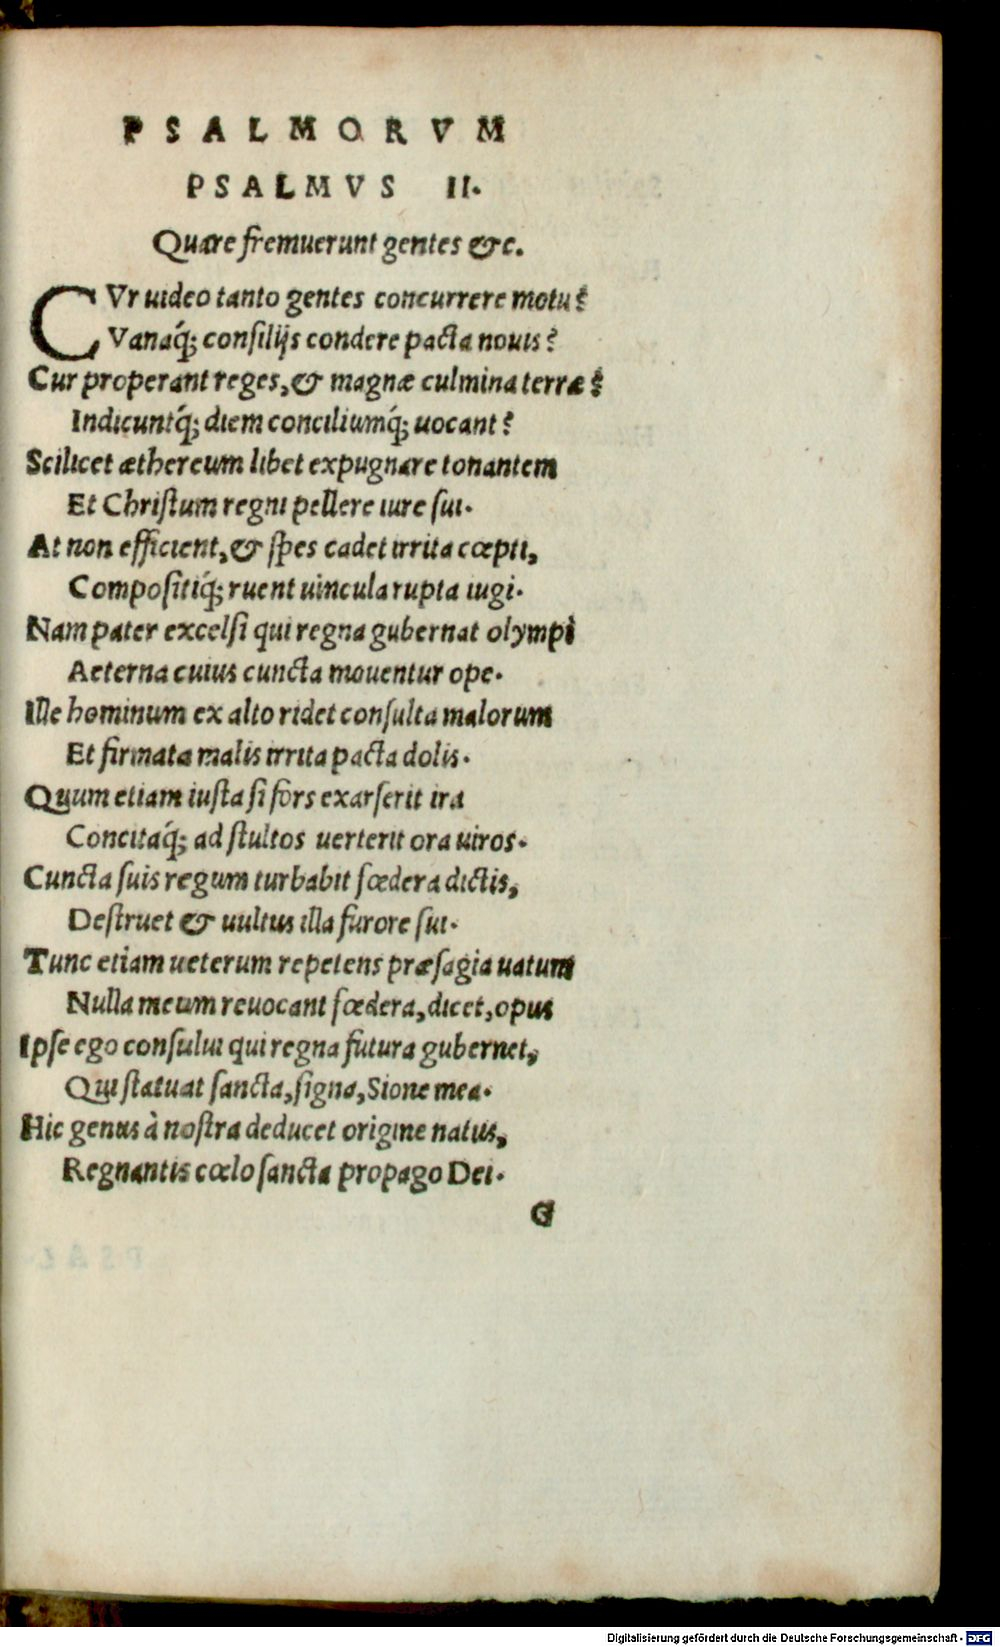 PSALMORVM
PSALMVS II.
Quare fremuerunt gentes &c.
CVr uideo tanto gentes concurrere motu?
Vanaq́; consilijs condere pacta nouis?
Cur properant reges, & magnæ culmina terræ?
Indicuntq́; diem conciliumq́; uocant?
Scilicet æthereum libet expugnare tonantem
Et Christum regni pellere iure sui.
At non efficient, & spes cadet irrita cœpti,
Compositiq́; ruent uincula rupta iugi.
Nam pater excelsi qui regna gubernat olympi
Aeterna cuius cuncta mouentur ope.
Ille hominum ex alto ridet consulta malorum
Et firmata malis irrita pacta dolis.
Quum etiam iusta si fors exarserit ira
Concitaq́; ad stultos uerterit ora uiros.
Cuncta suis regum turbabit fœdera dictis,
Destruet & uultus illa furore sui.
Tunc etiam ueterum repetens præsagia uatum
Nulla meum reuocant fœdera, dicet, opus
Ipse ego consului qui regna futura gubernet,
Qui statuat sancta, signa, Sione mea.
Hic genus à nostra deducet origine natus,
Regnantis cœlo sancta propago Dei.
G
Digitalisierung gefördert durch die Deutsche Forschungsgemeinschaft - DFG